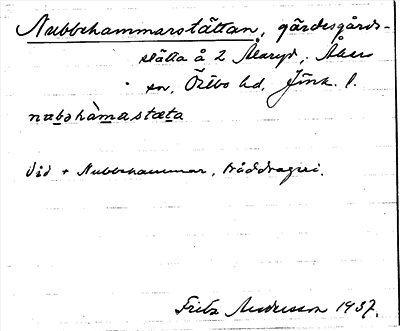 Nubbehammarstättan, gärdesgårds-
stätta å 2 Åaryd, Åkers
sn, Östbo hd, Jönk. l.
nubəhàmastæta
Vid + Nubbehammar, tråddrageri.
Fritz Andersson 1937.